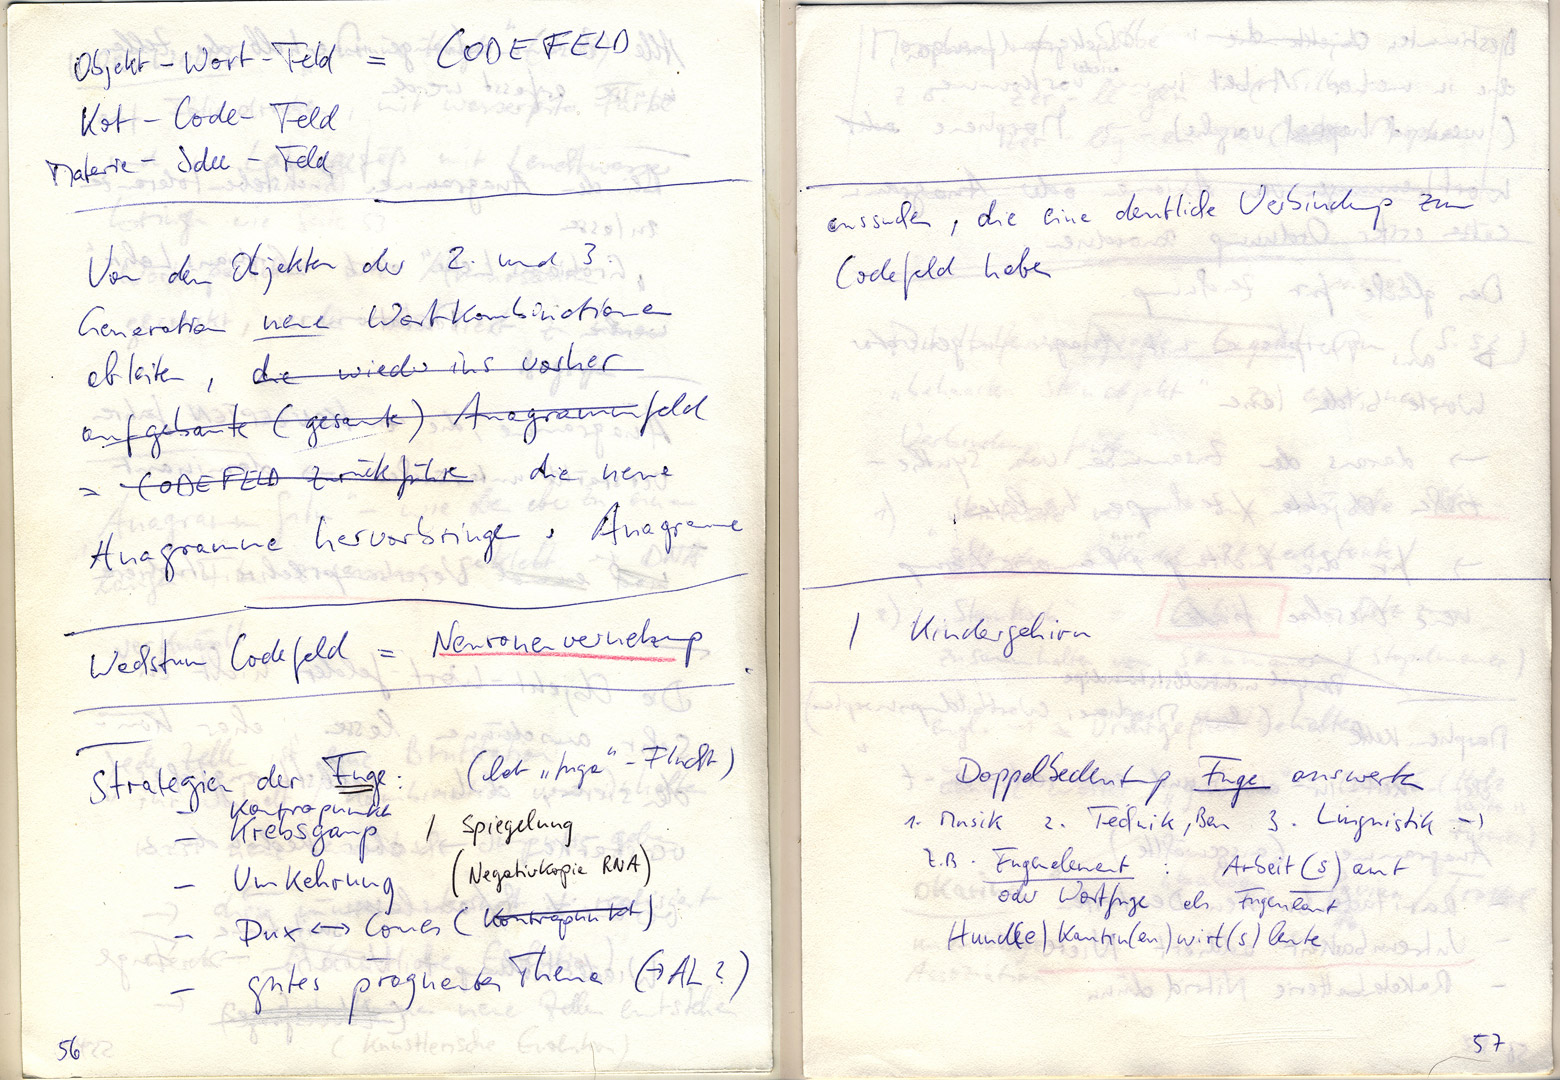 Objekt-Wort-Feld = CODEFELD
Kot-Code-Feld
Materie-Idee-Feld
Von den Objekten der 2. und 3.
Generation neue Wortkombinationen
ableiten, die wieder ins vorher
aufgebaute (gesamte) Anagrammfeld
= CODEFELD zurückführen die neue
Anagramme hervorbringen, Anagramme
Wachstum Codefeld = Neuronenvernetzung
Strategien der Fuge: (lat "fuga" - Flucht)
- Kontrapunkt
- Krebsgang / Spiegelung
- Umkehrung (Negativkopie RNA)
- Dux ↔ Comes (Kontrapunkt)
- gutes prägnantes Thema (→AL?)
56
aussuchen, die eine deutliche Verbindung zum
Codefeld haben
/ Kindergehirn
Doppelbedeutung Fuge auswerten
1. Musik 2. Technik, Bau 3. Linguistik →
z.B. Fugenelement : Arbeit(s)amt
oder Wortfuge als Fugenlaut
Hund(e)kantin(en)wirt(s)leute
57